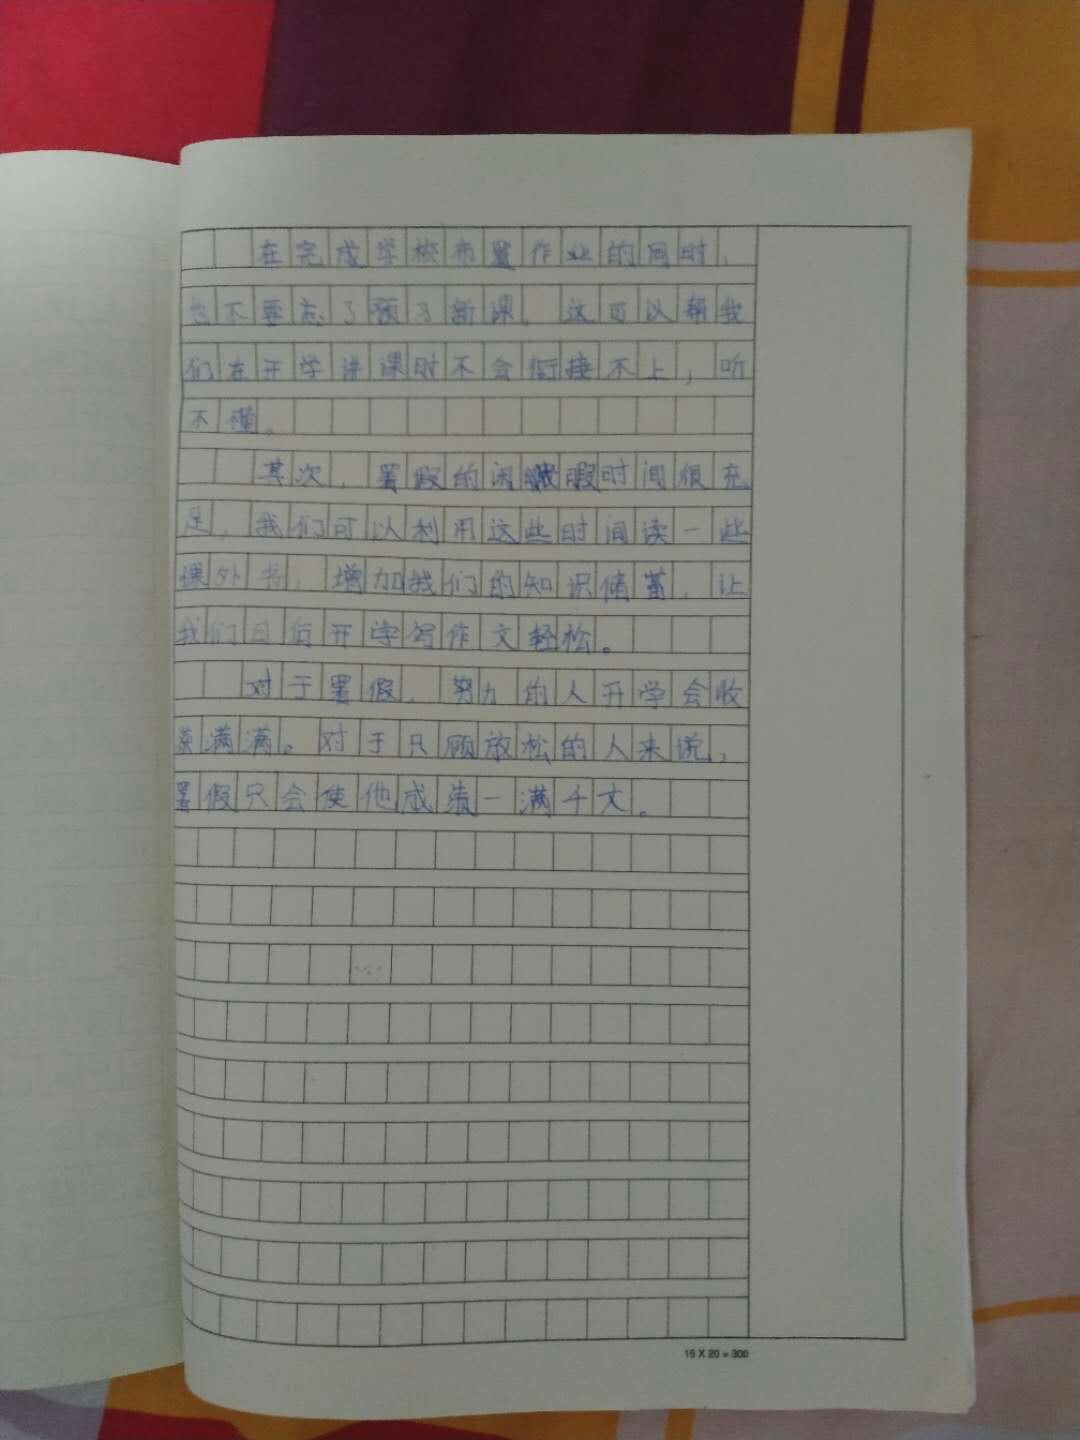 在完成学校布置作业的同时，
也不要忘了预习新课，这可以帮我
们在开学讲课时不会衔接不上，听
不懂。
其次，署假的闲暇时间很充
足，我们可以利用这些时间读一些
课外书，增加我们的知识储蓄，让
我们日后开学写作文轻松。
对于署假，努力的人开学会收
获满满。对于只顾放松的人来说，
署假只会使他成绩一满千丈。
15 X 20 = 300